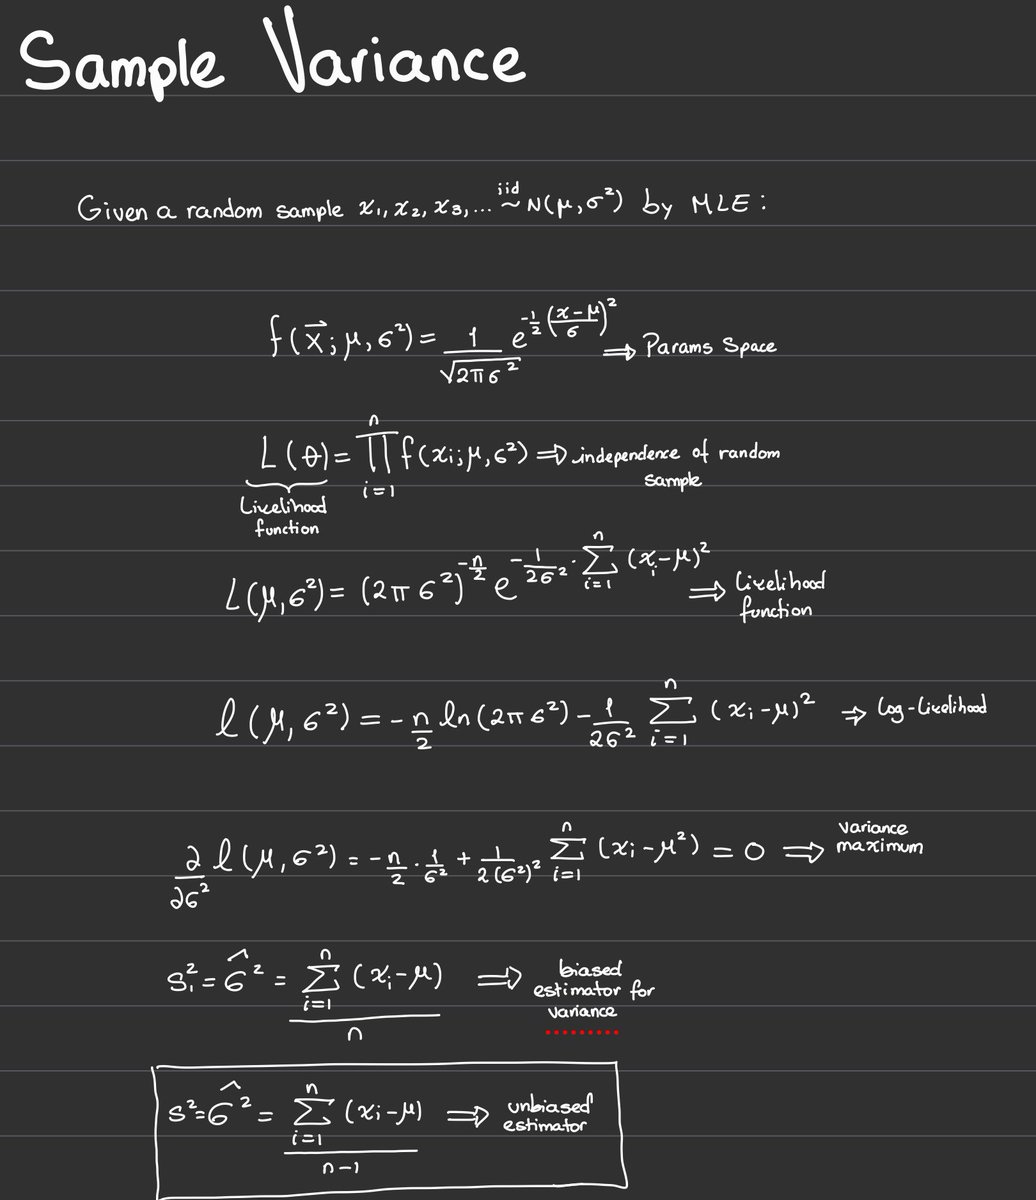 Sample Variance
Given a random sample x₁, x₂, x₃, ... iid ~ N(μ, σ²) by MLE:
f(x⃗; μ, σ²) = 1/√(2πσ²) e^(-1/2 ((x-μ)/σ)²) ⇒ Params Space
L(θ) = ∏_{i=1}^{n} f(xᵢ; μ, σ²) ⇒ independence of random
sample
Likelihood
function
L(μ, σ²) = (2πσ²)^(-n/2) e^(-1/(2σ²) · ∑_{i=1}^{n} (xᵢ-μ)²) ⇒ Likelihood
function
l(μ, σ²) = -n/2 ln(2πσ²) - 1/(2σ²) ∑_{i=1}^{n} (xᵢ-μ)² ⇒ log-Likelihood
∂/∂σ² l(μ, σ²) = -n/2 · 1/σ² + 1/(2(σ²)²) ∑_{i=1}^{n} (xᵢ-μ²) = 0 ⇒ variance
maximum
S₁² = σ̂² = ∑_{i=1}^{n} (xᵢ-μ) / n ⇒ biased
estimator for
variance
S² = σ̂² = ∑_{i=1}^{n} (xᵢ-μ) / n-1 ⇒ unbiased
estimator